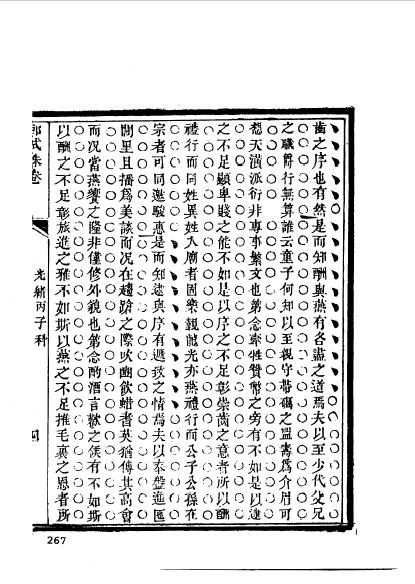 齒之序也有然是而知酬與燕有各盡之道焉夫以至少代父兄
之職爵行無算誰云童子何知以至親守帶礪之盟壽爲介眉可
想天潢派衍非專事繁文也第念牽牲贊幣之旁有不如是以逮
之不足顯卑賤之能不如是以序之不足彰崇齒之意者所以酬
禮行而同姓異姓入廟者固樂觀龍光亦燕禮行而公子公孫在
宗者可同邀駿惠是而知逮與序有遞致之情焉夫以奉盤進匜
閭里且播爲美談而况在趨蹌之際吹豳飲蜡耆英猶傳其高會
而况當燕饗之隆非僅修外貌也第念酌酒言歡之後有不如斯
以酬之不足彰旅進之雅不如斯以燕之不足推毛裏之恩者所
鄉試硃卷
光緒丙子科
四
267